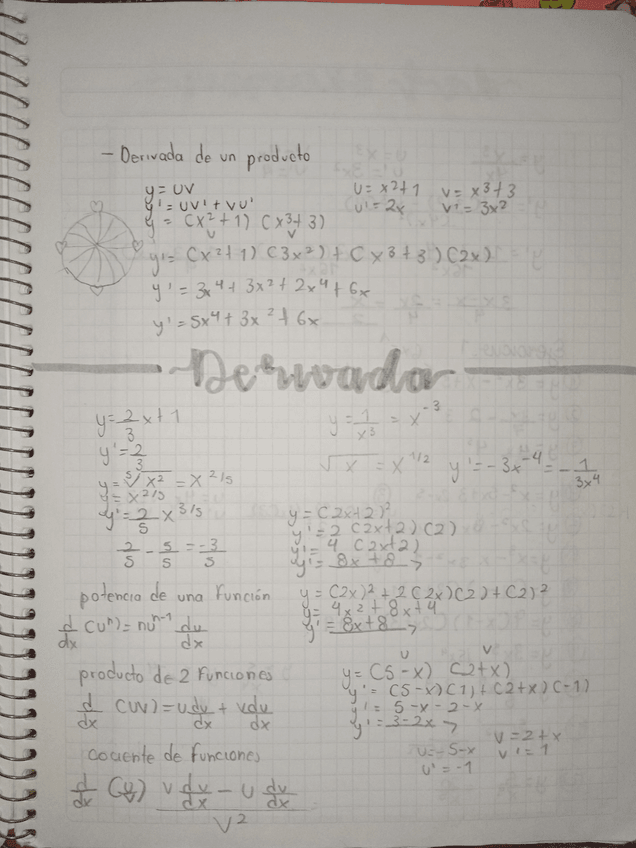 - Derivada de un producto
y = UV
y' = UV' + VU'
U = x²+1 V = x³+3
U' = 2x V' = 3x²
y = (x²+1) (x³+3)
U V
y' = (x²+1) (3x²) + (x³+3) (2x)
y' = 3x⁴ + 3x² + 2x⁴ + 6x
y' = 5x⁴ + 3x² + 6x
Derivada
y = 2/3 x + 1
y' = 2/3
y = ⁵√x² = x^2/5
y = x^2/5
y' = 2/5 x^3/5
2/5 - 5/5 = -3/5
y = 1/x³ = x^-3
√x = x^1/2 y' = -3x^-4 = - 1/3x⁴
y = (2x+2)²
y' = 2 (2x+2) (2)
y' = 4 (2x+2)
y' = 8x + 8 →
potencia de una Función
d/dx (Uⁿ) = nU^n-1 du/dx
y = (2x)² + 2(2x)(2) + (2)²
y = 4x² + 8x + 4
y' = 8x + 8 →
producto de 2 Funciones
d/dx (UV) = U dv/dx + V du/dx
U V
y = (5-x) (2+x)
y' = (5-x)(1) + (2+x)(-1)
y' = 5-x-2-x
y' = 3-2x →
U = 5-x V = 2+x
U' = -1 V' = 1
cociente de funciones
d/dx (U/V) V du/dx - U dv/dx / V²